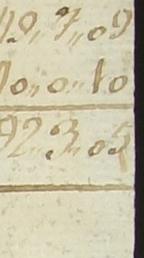 19.. 7.. 09
10.. 0.. 10
92.. 3.. 05